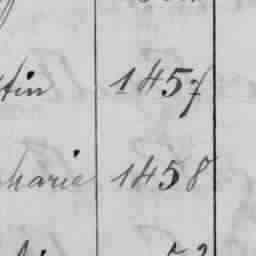 tin 1457
harie 1458